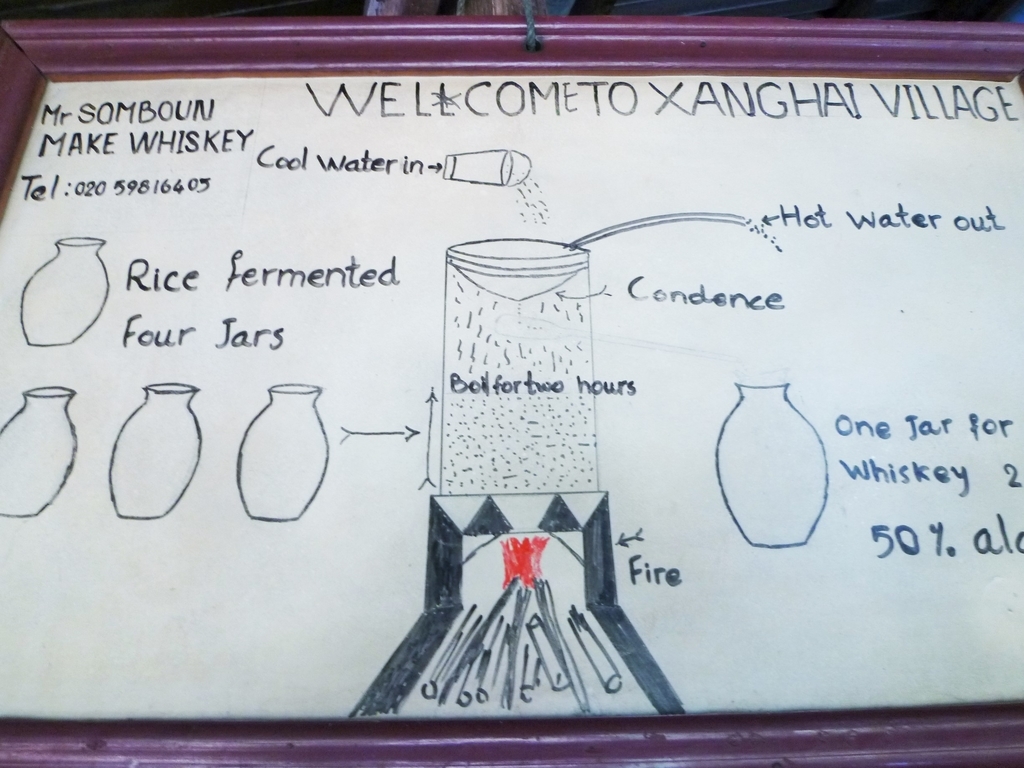 WELL*COME TO XANGHAI VILLAGE
Mr SOMBOUN
MAKE WHISKEY
Tel: 020 59816405
Cool Water in
Hot Water out
Rice fermented
Four Jars
Condence
Boil for two hours
One Jar for
Whiskey 2
50%
Fire